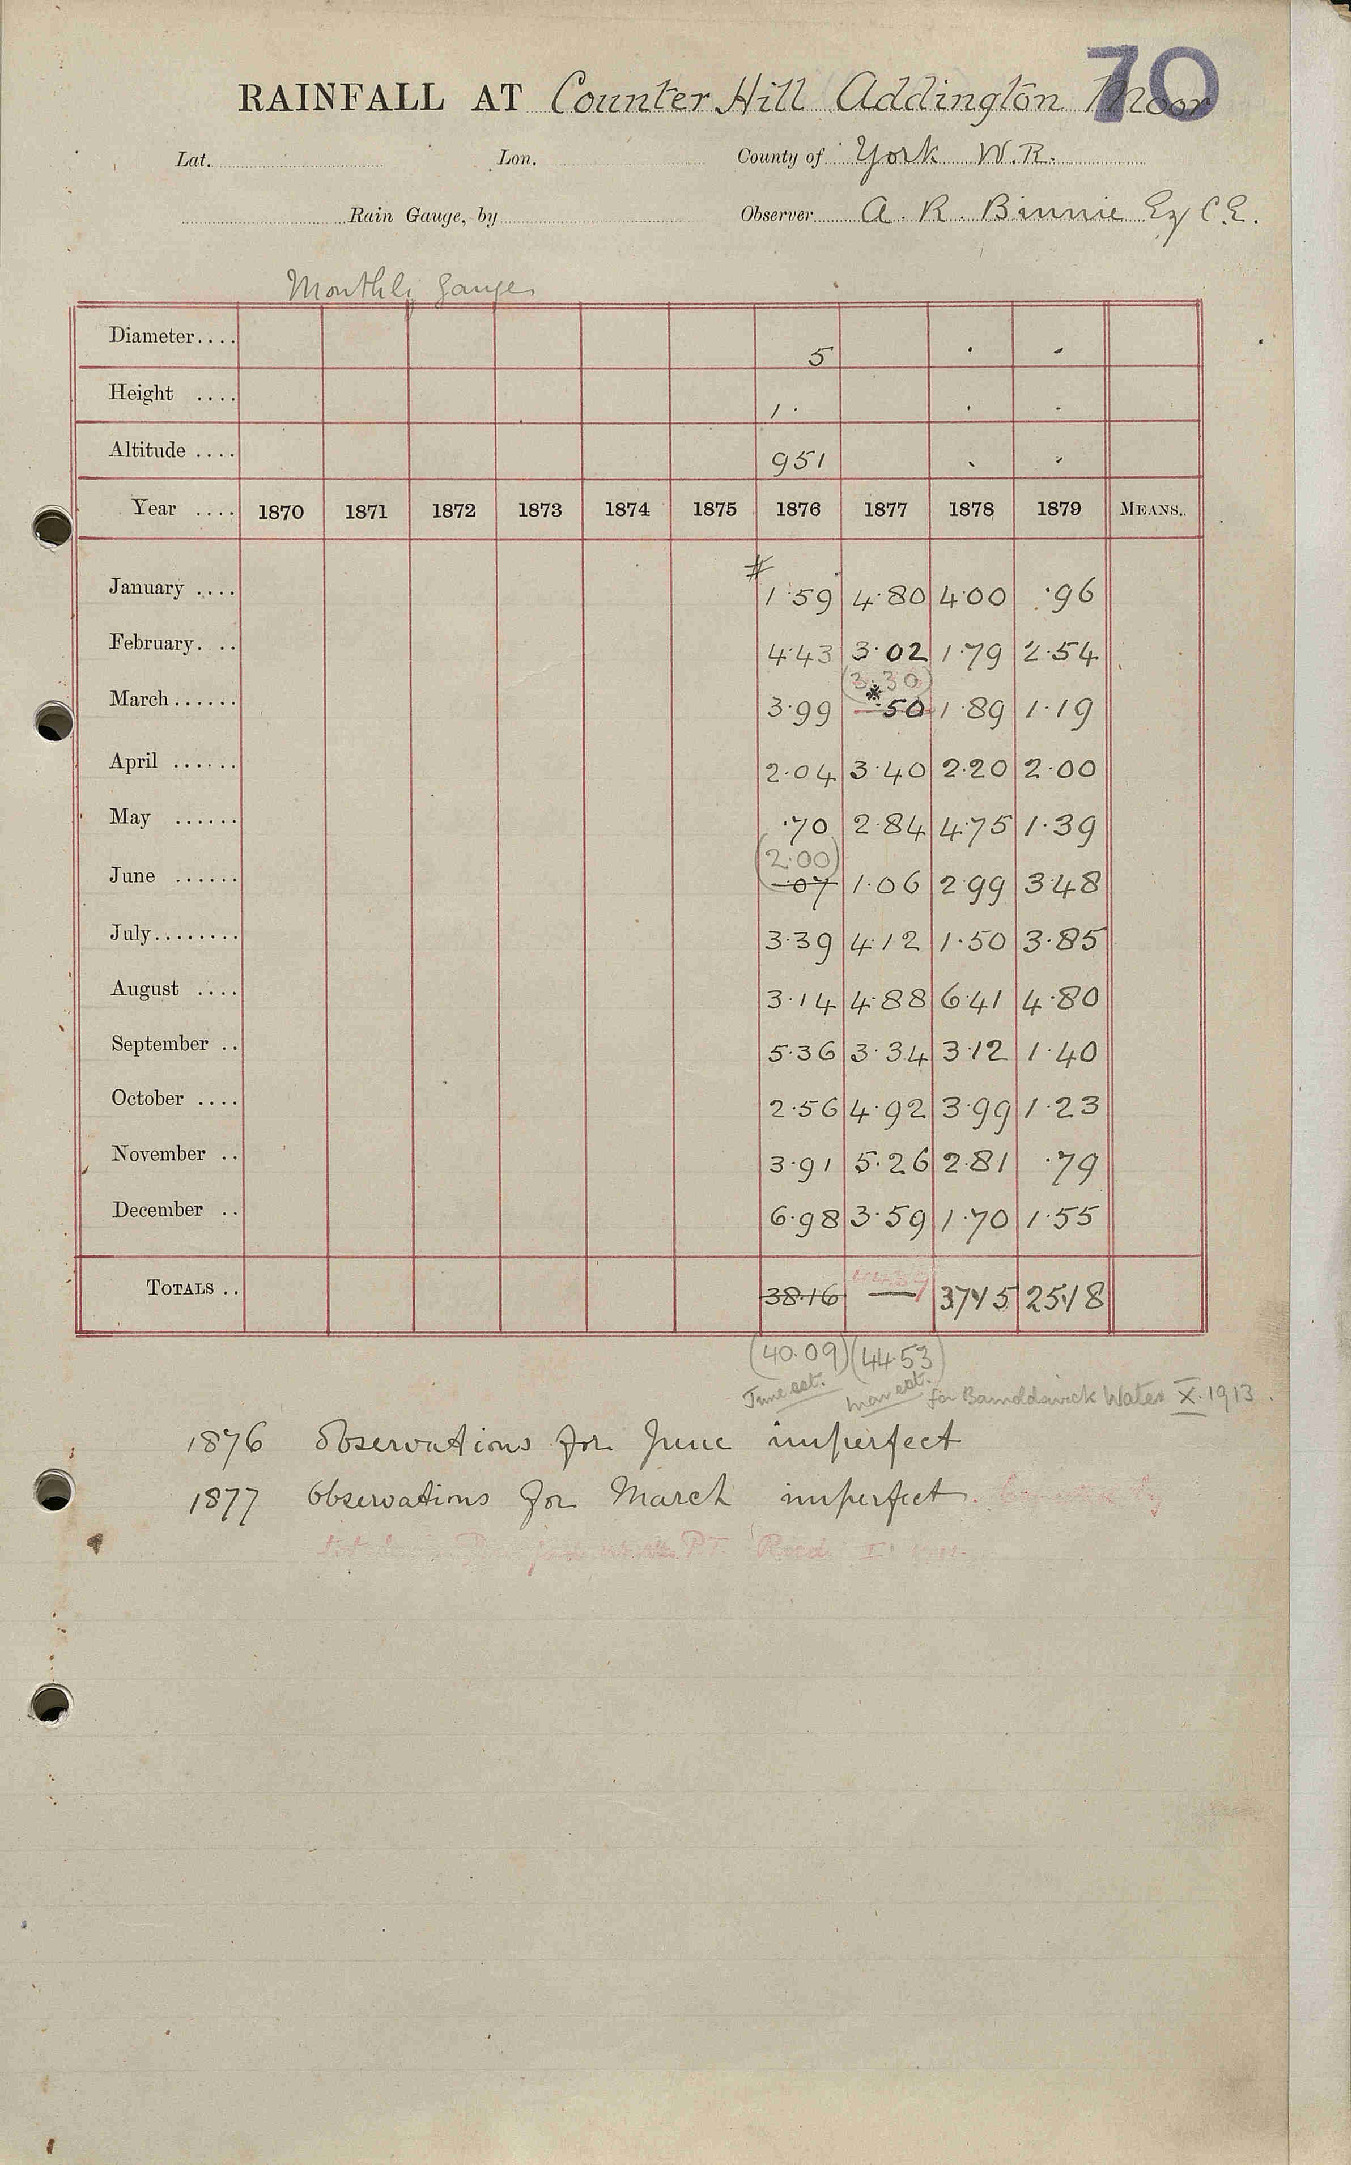 70
RAINFALL AT Counter Hill Addington Moor
Lat. Lon. County of York W.R.
Rain Gauge, by Observer A. R. Binnie Esq C.E.
Monthly Gauges
Diameter.... 5 . .
Height .... 1. . .
Altitude .... 951 . .
Year .... 1870 1871 1872 1873 1874 1875 1876 1877 1878 1879 MEANS.
#
January .... 1.59 4.80 4.00 .96
February. .. 4.43 3.02 1.79 2.54
(3.30)
March...... 3.99 *.50 1.89 1.19
April ...... 2.04 3.40 2.20 2.00
May ...... .70 2.84 4.75 1.39
(2.00)
June ...... .07 1.06 2.99 3.48
July........ 3.39 4.12 1.50 3.85
August .... 3.14 4.88 6.41 4.80
September .. 5.36 3.34 3.12 1.40
October .... 2.56 4.92 3.99 1.23
November .. 3.91 5.26 2.81 .79
December .. 6.98 3.59 1.70 1.55
TOTALS .. 38.16 — 37.15 25.18
(40.09) (44.53)
June est. Mar est. for Barnoldswick Water X.1913.
1876 Observations for June imperfect
1877 Observations for March imperfect.